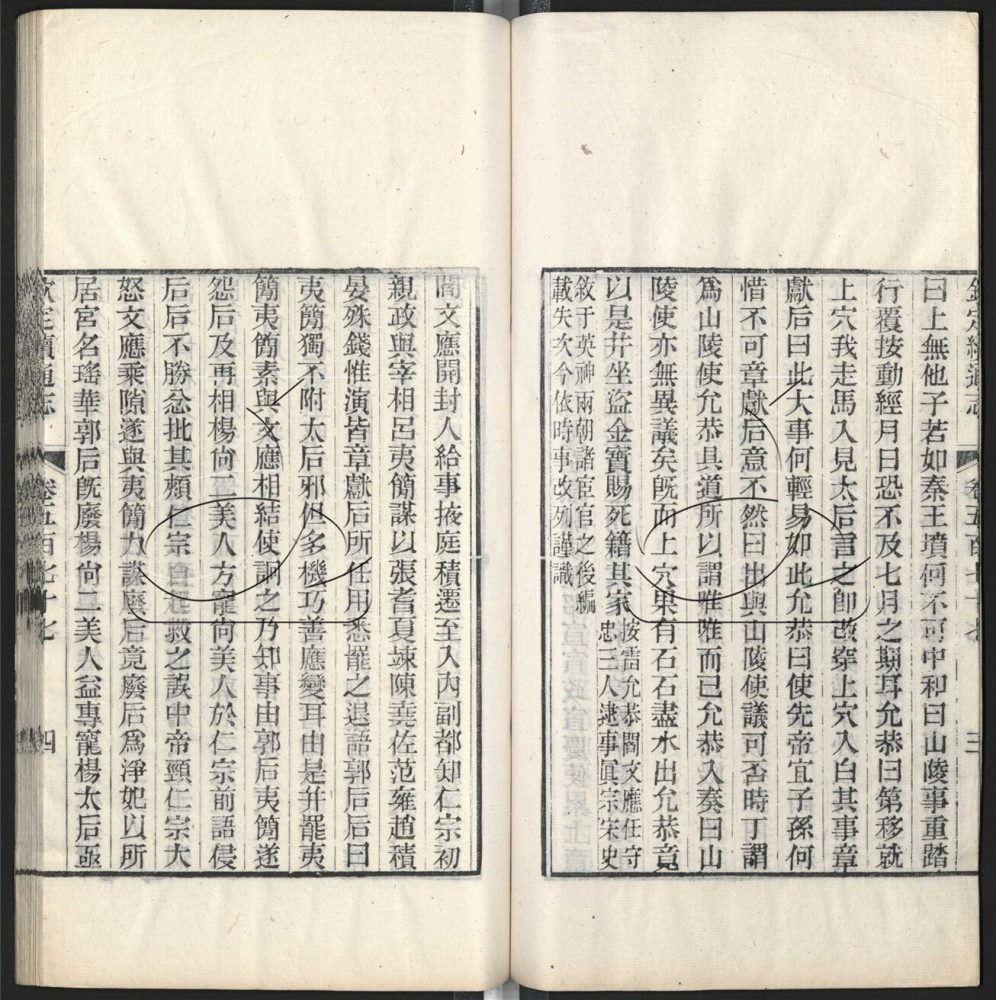 欽定續通志 卷五百七十七 三
曰上無他子若如秦王墳何不可中和曰山陵事重踏
行覆按動經月日恐不及七月之期耳允恭曰第移就
上穴我走馬入見太后言之卽改穿上穴入白其事章
獻后曰此大事何輕易如此允恭曰使先帝宜子孫何
惜不可章獻后意不然曰出與山陵使議可否時丁謂
爲山陵使允恭具道所以謂唯唯而已允恭入奏曰山
陵使亦無異議矣旣而上穴果有石石盡水出允恭竟
以是并坐盜金寶賜死籍其家按雷允恭閻文應任守
忠三人逮事眞宗宋史
敘于英神兩朝諸宦官之後編
載失次今依時事改列謹識
閻文應開封人給事掖庭積遷至入內副都知仁宗初
親政與宰相呂夷簡謀以張耆夏竦陳堯佐范雍趙稹
晏殊錢惟演皆章獻后所任用悉罷之退語郭后后曰
夷簡獨不附太后邪但多機巧善應變耳由是并罷夷
簡夷簡素與文應相結使詗之乃知事由郭后夷簡遂
怨后及再相楊尙二美人方寵尙美人於仁宗前語侵
后后不勝忿批其頰仁宗自起救之誤中帝頸仁宗大
怒文應乘隙遂與夷簡力謀廢后竟廢后爲淨妃以所
居宮名瑤華郭后旣廢楊尙二美人益專寵楊太后亟
欽定續通志 卷五百七十七 四